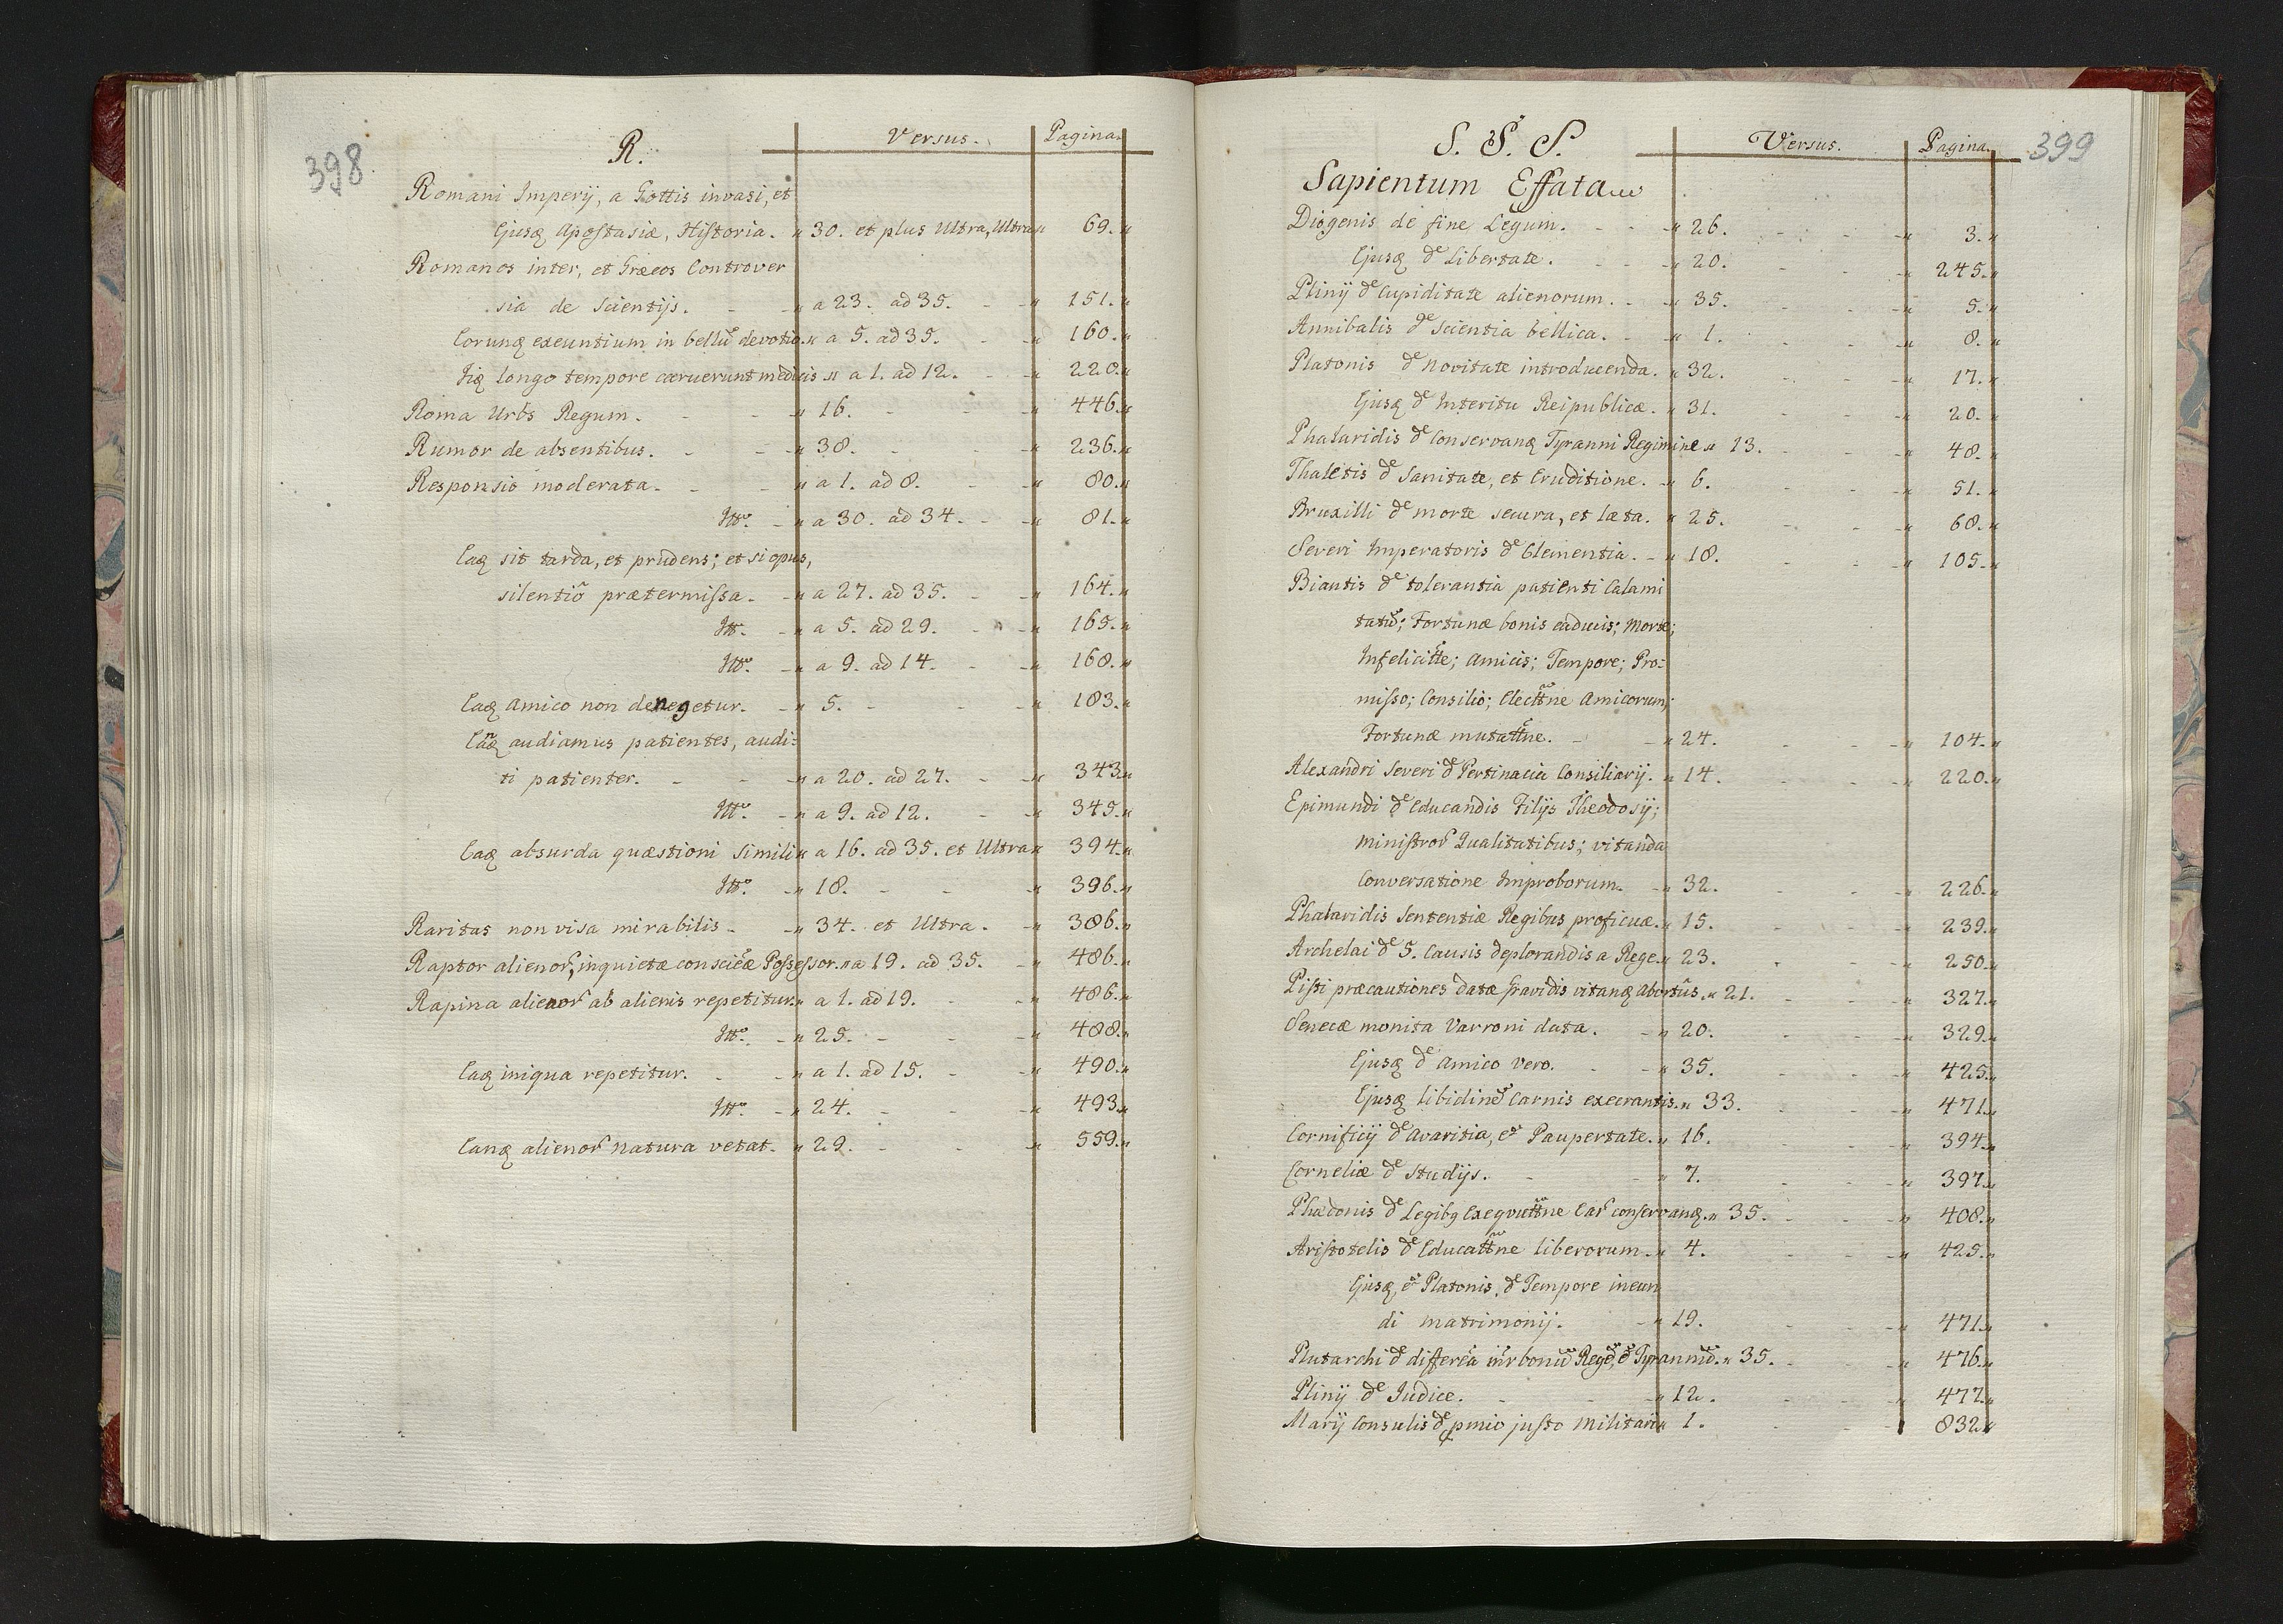 398
R. Versus. Pagina.
Romani Imperij, a Gottis invasi, et
Ejusq Apostasiæ, Historia. 30. et plus Ultra, Ultra 69.
Romanos inter, et Græcos Controver
sia de Scientijs. a 23. ad 35. 151.
Eorunq exeuntium in bellũ devotio. a 5. ad 35. 160.
Jiq longo tempore caruerunt medicis a 1. ad 12. 220.
Roma Urbs Regum. 16. 446.
Rumor de absentibus. 38. 236.
Responsio moderata. a 1. ad 8. 80.
Itt. a 30. ad 34. 81.
Eaq sit tarda, et prudens; et si opus,
silentiõ prætermissa. a 27. ad 35. 164.
Itt. a 5. ad 29. 165.
Itt. a 9. ad 14. 168.
Eaq amico non denegetur. 5. 183.
Eãq audiamus patientes, audi:
ti patienter. a 20. ad 27. 343.
Itt. a 9. ad 12. 345.
Eaq absurda quæstioni simili a 16. ad 35. et Ultra 394.
Itt. 18. 396.
Raritas non visa mirabilis. 34. et Ultra. 386.
Raptor alienor, inquietæ consciẽæ Possessor. a 19. ad 35. 486.
Rapina alienor ab alienis repetitur. a 1. ad 19. 486.
Itt. 25. 488.
Eaq iniqua repetitur. a 1. ad 15. 490.
Itt. 24. 493.
Eanq alienor natura vetat. 29. 559.
399
S. S. S. Versus. Pagina.
Sapientum Effata
Diogenis de fine Legum. 26. 3.
Ejusq de Libertate. 20. 245.
Plinij de Cupiditate alienorum. 35. 5.
Annibalis de scientia bellica. 1. 8.
Platonis de Novitate introducenda. 32. 17.
Ejusq de Interitu Reipublicæ. 31. 20.
Phalaridis de Conservanq Tyranni Regimine 13. 48.
Thaletis de Sanitate, et Eruditione. 6. 51.
Bruxilli de morte secura, et læta. 25. 68.
Severi Imperatoris de Clementia. 18. 105.
Biantis de tolerantia patienti Calami
tatũ; Fortunæ bonis caducis; Morte;
Infelicitte; Amicis; Tempore; Pro:
misso; Consilio; Electtne Amicorum;
Fortunæ mutattne. 24. 104.
Alexandri Severi de Pertinacia Consiliarij. 14. 220.
Epimundi de Educandis Filijs Theodosij;
ministror Qualitatibus; vitanda
Conversatione Improborum. 32. 226.
Phalaridis Sententiæ Regibus proficuæ. 15. 239.
Archelai de 5. Causis deplorandis a Rege. 23. 250.
Pisti præcautiones datæ Gravidis vitanq Abortũs. 21. 327.
Senecæ monita Varroni data. 20. 329.
Ejusq de Amico vero. 35. 425.
Ejusq libidinẽ Carnis execrantis. 33. 471.
Cornificij de Avaritia, et Paupertate. 16. 394.
Corneliæ de Studijs. 7. 397.
Phædonis de Legibq Exequuttne Ear conservanq. 35. 408.
Aristotelis de Educattne liberorum. 4. 425.
Ejusq, et Platonis, de Tempore ineun
di matrimonij. 19. 471.
Plutarchi de differẽa intr bonũ Regẽ, et Tyrannũ. 35. 476.
Plinij de Judice. 12. 477.
Marij Consulis de pmio justo Militari 1. 832.